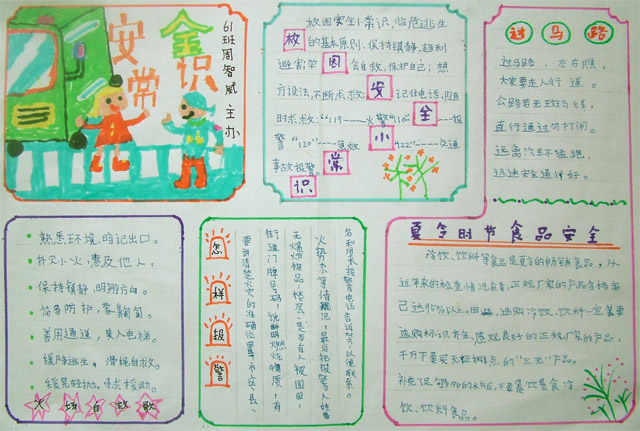 安全常识
61班周智威 主办
校园安全小常识,临危逃生
的基本原则,保持镇静,趋利
避害,学会自救,保护自己;想
方设法,不断求救;记住电话,随
时求救:"119——火警"110"——报
警"120"——急救 "122"——交通
事故报警。
校园安全小常识
过马路
过马路,左右瞧,
大家要走人行道。
公路若无斑马线,
直行通过勿打闹。
远离汽车不猛跑,
迅速安全通行好。
熟悉环境,暗记出口。
扑灭小火,惠及他人。
保持镇静,明辨方向。
简易防护,蒙鼻匍匐。
善用通道,莫入电梯。
缓降逃生,滑绳自救。
缓晃轻抛,寻求援助。
火场自救歌
怎样报警
要讲清楚火灾的准确位置、市、区、县、
街道门牌号码,说明燃烧物质,有
无爆炸物品,楼层,是否有人被围困,
火势大小等情况,最后把报警人姓
名和用来报警的电话告诉对方以便联系。
夏令时节食品安全
冷饮、饮料等食品是夏令的畅销食品,从
近年来的检查情况来看,正规厂家的产品合格率
已达95%以上。因 选购冷饮、饮料一定要
选购标识齐全,感观良好的正规厂家的产品,
千万不要买无证摊点的"三无"产品。
补充足够的水份,不要暴饮暴食冷
饮、饮料食品。